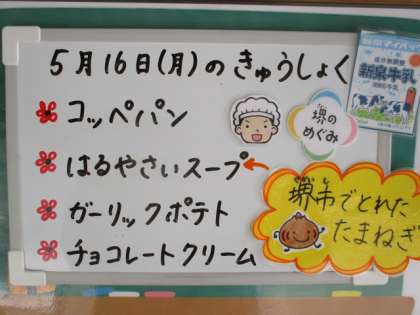 5月16日(月)のきゅうしょく
コッペパン
はるやさいスープ
ガーリックポテト
チョコレートクリーム
堺の
めぐみ
新泉牛乳
堺市でとれた
たまねぎ